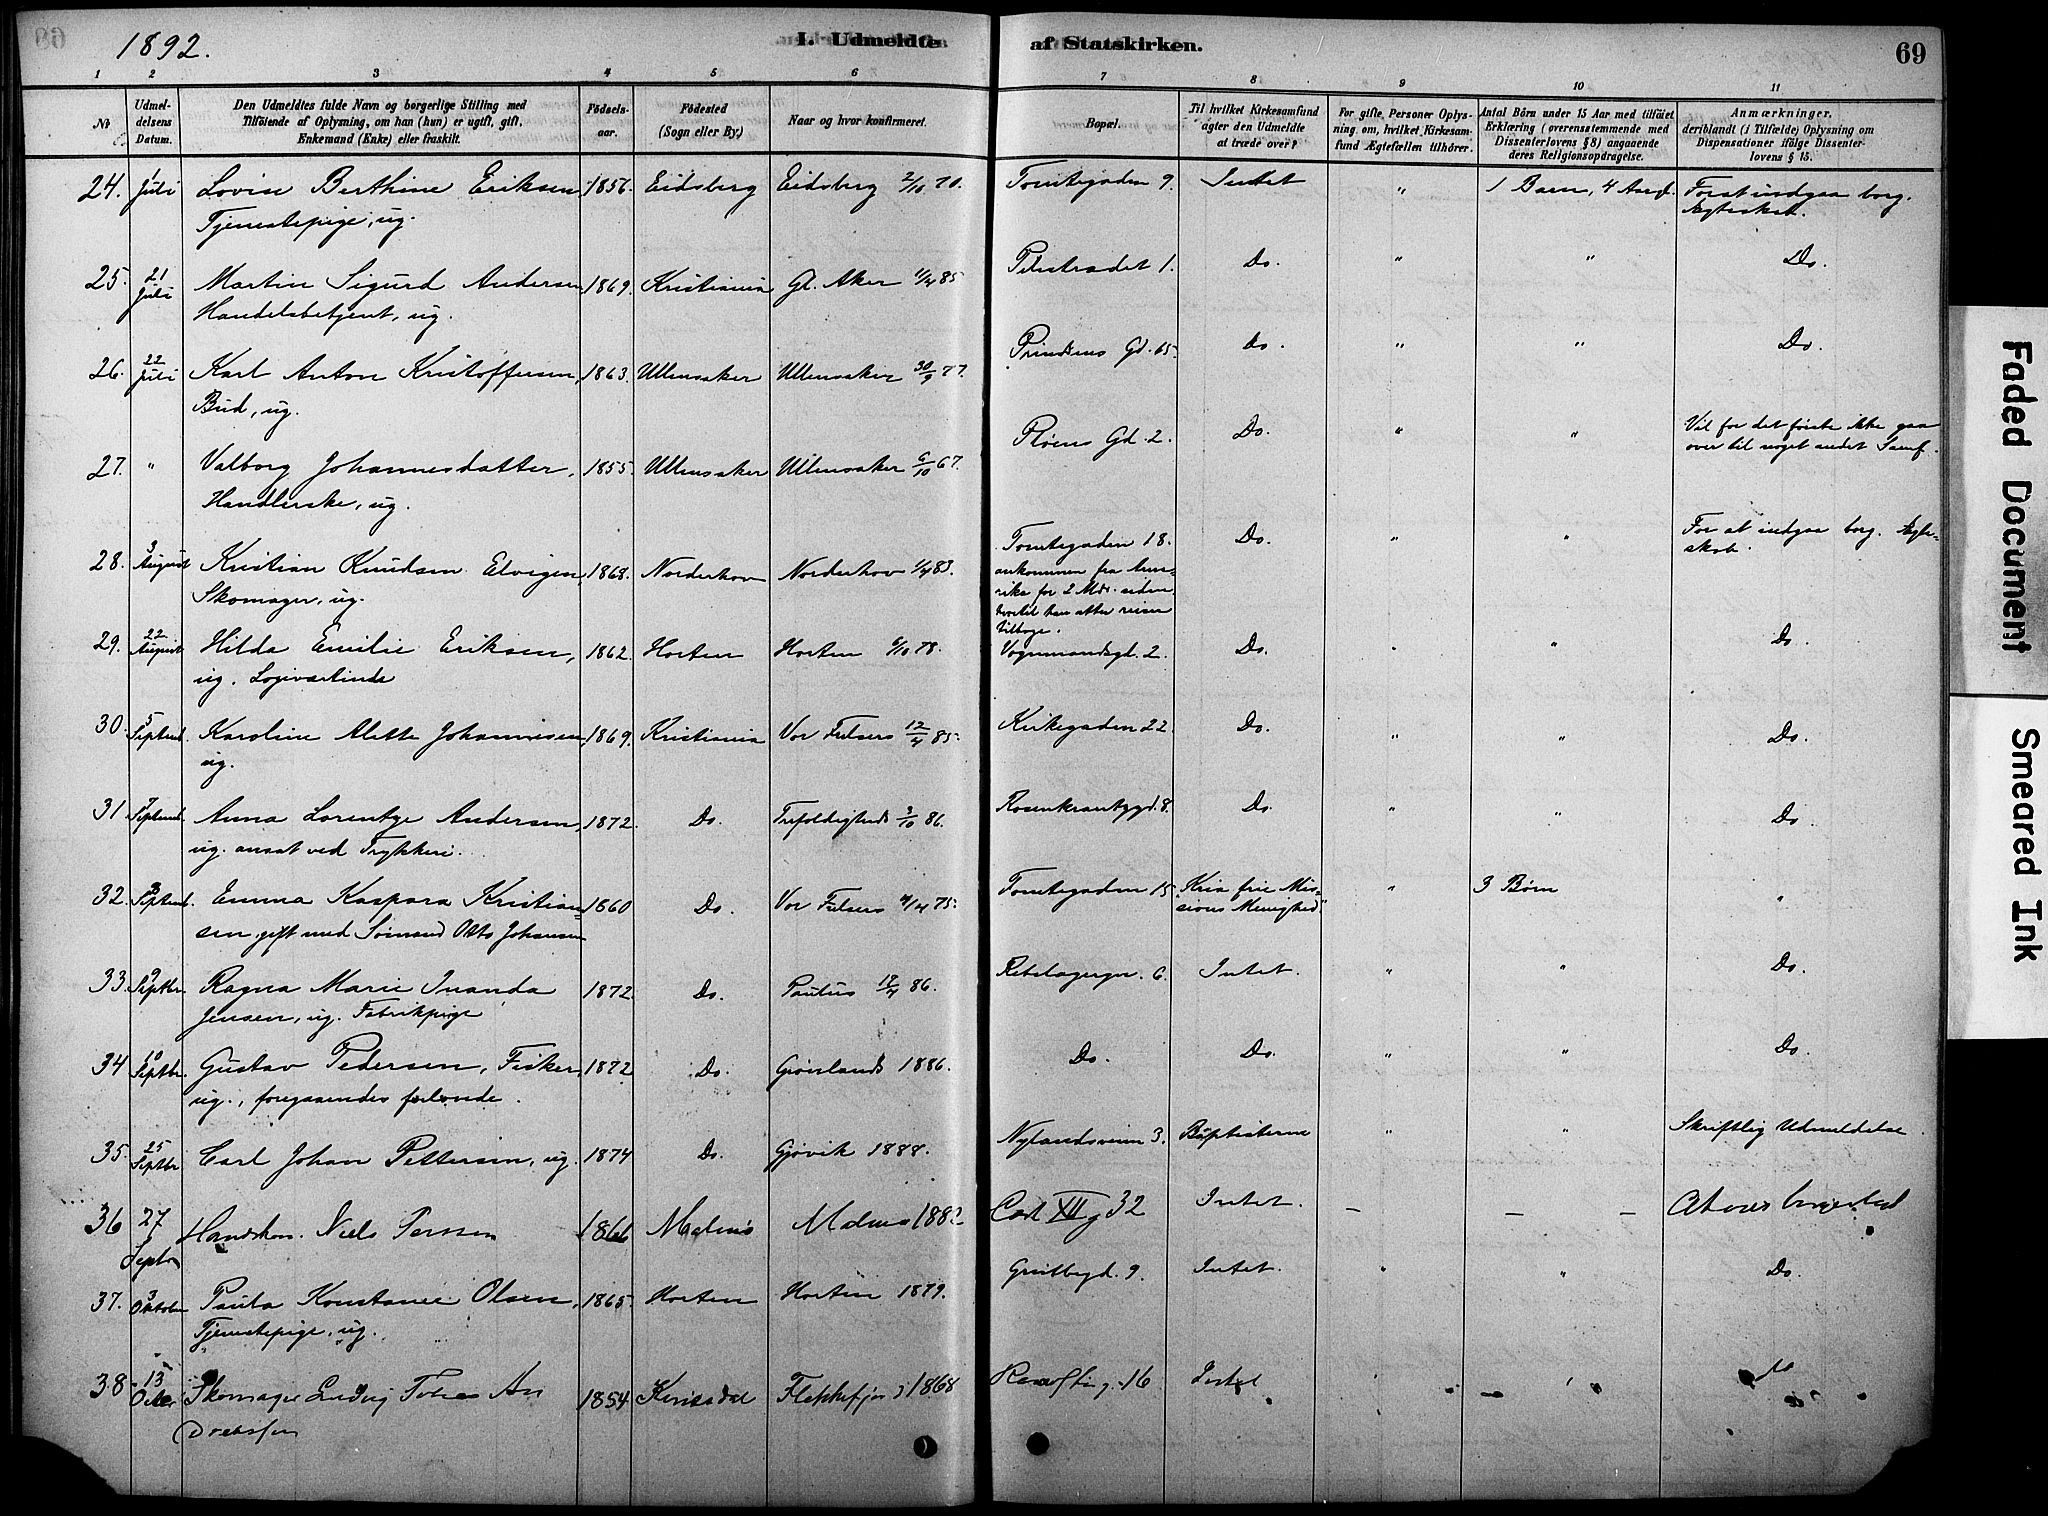 1892.
I. Udmeldte af Statskirken.
69
1 2 3 4 5 6 7 8 9 10 11
No
Udmeldelsens Datum.
Den Udmeldtes fulde Navn og borgerlige Stilling med
Tilföiende af Oplysning, om han (hun) er ugift, gift,
Enkemand (Enke) eller fraskilt.
Födselsaar.
Födested
(Sogn eller By.)
Naar og hvor konfirmeret.
Bopæl.
Til hvilket Kirkesamfund
agter den Udmeldte
at træde over?
For gifte, Personer Oplysning
om, hvilket Kirkesamfund
Ægtefællen tilhörer.
Antal Börn under 15 Aar med tilföiet
Erklæring (overensstemmende med
Dissenterlovens § 8) angaaende
deres Religionsopdragelse.
Anmærkninger,
deriblandt (i Tilfælde) Oplysning om
Dispensationer ifölge Dissenterlovens § 15.
24. 1 Juli Lovise Berthine Eriksen, 1856. Eidsberg Eidsberg 2/10 70. Tomtegaden 9. Intet " 1 Barn, 4 Aar gl. For at indgaa borg.
Tjenestepige, ug. Ægteskab.
25. 21 Juli Martin Sigurd Andersen 1869. Kristiania Gl. Aker 11/4 85 Pilestrædet 1. Do. " " Do.
Handelsbetjent, ug.
26. 22 Juli Karl Anton Kristoffersen, 1863. Ullensaker Ullensaker 30/9 77. Prindsens Gd. 15. Do. " " Do.
Bud, ug.
27. " Valborg Johannesdatter, 1855. Ullensaker Ullensaker 6/10 67. Pløens Gd. 2. Do. " " Vil for det første ikke gaa
over til noget andet Samf.
Handlerske, ug.
28. 3 August Kristian Knudsen Elvigen, 1868. Norderhov Norderhov 1/4 83. Tomtegaden 18. Do. " " For at indgaa borg. Ægteskab.
Skomager, ug. ankommen fra Amerika
for 2 Mdr. siden
hvortil han atter reiser
tilbage.
29. 22 August Hilda Emilie Eriksen, 1862. Horten Horten 6/10 78. Vognmandsgd. 2. Do. " " Do.
ug. Logivertinde
30. 5 Septemb. Karoline Alette Johannesen, 1869. Kristiania Vor Frelsers 12/4 85. Kirkegaden 22. Do. " " Do.
ug.
31 7 Septemb. Anna Lorentze Andersen, 1872. Do. Trefoldigheds 3/10 86. Rosenkrantzgd. 8. Do. " " Do.
ug. ansat ved Trykkeri.
32. Septemb. Emma Kaspara Kristiansen 1860 Do. Vor Frelsers 4/4 75. Tomtegaden 15. Kria frie Missions
Menighed. " 3 Børn "
gift med Sømand Otto Johansen
33. 9 Septbr. Ragna Marie Inanda 1872. Do. Paulus 12/4 86. Rebslagergn. 6. Intet. " " Do.
Jensen, ug. Fabrikpige
34 10 Septbr. Gustav Pedersen, Fisker, 1872 Do. Grønlands 1886. Do. Do. " " Do.
ug., foregaaendes forlovede.
35. 25 Septbr Carl Johan Pettersen, ug. 1874 Do. Gjøvik 1888. Nylandsveien 3. Baptisterne " " Skriftlig Udmeldelse
36 27 Septbr Handskm. Niels Persson 1866 Malmø Malmø 1882 Carl XII g 32 Intet. — — —
37. 3 Oktober Paula Konstance Olsen, 1865. Horten Horten 1879. 9. Intet. " " Do.
Tjenestepige, ug.
38 13 Octbr Skomager Ludvig Tobias An 1854 Kvinesdal Flekkefjord 1868 16 Intet " " Do
Dreassen
Faded Document
Smeared Ink